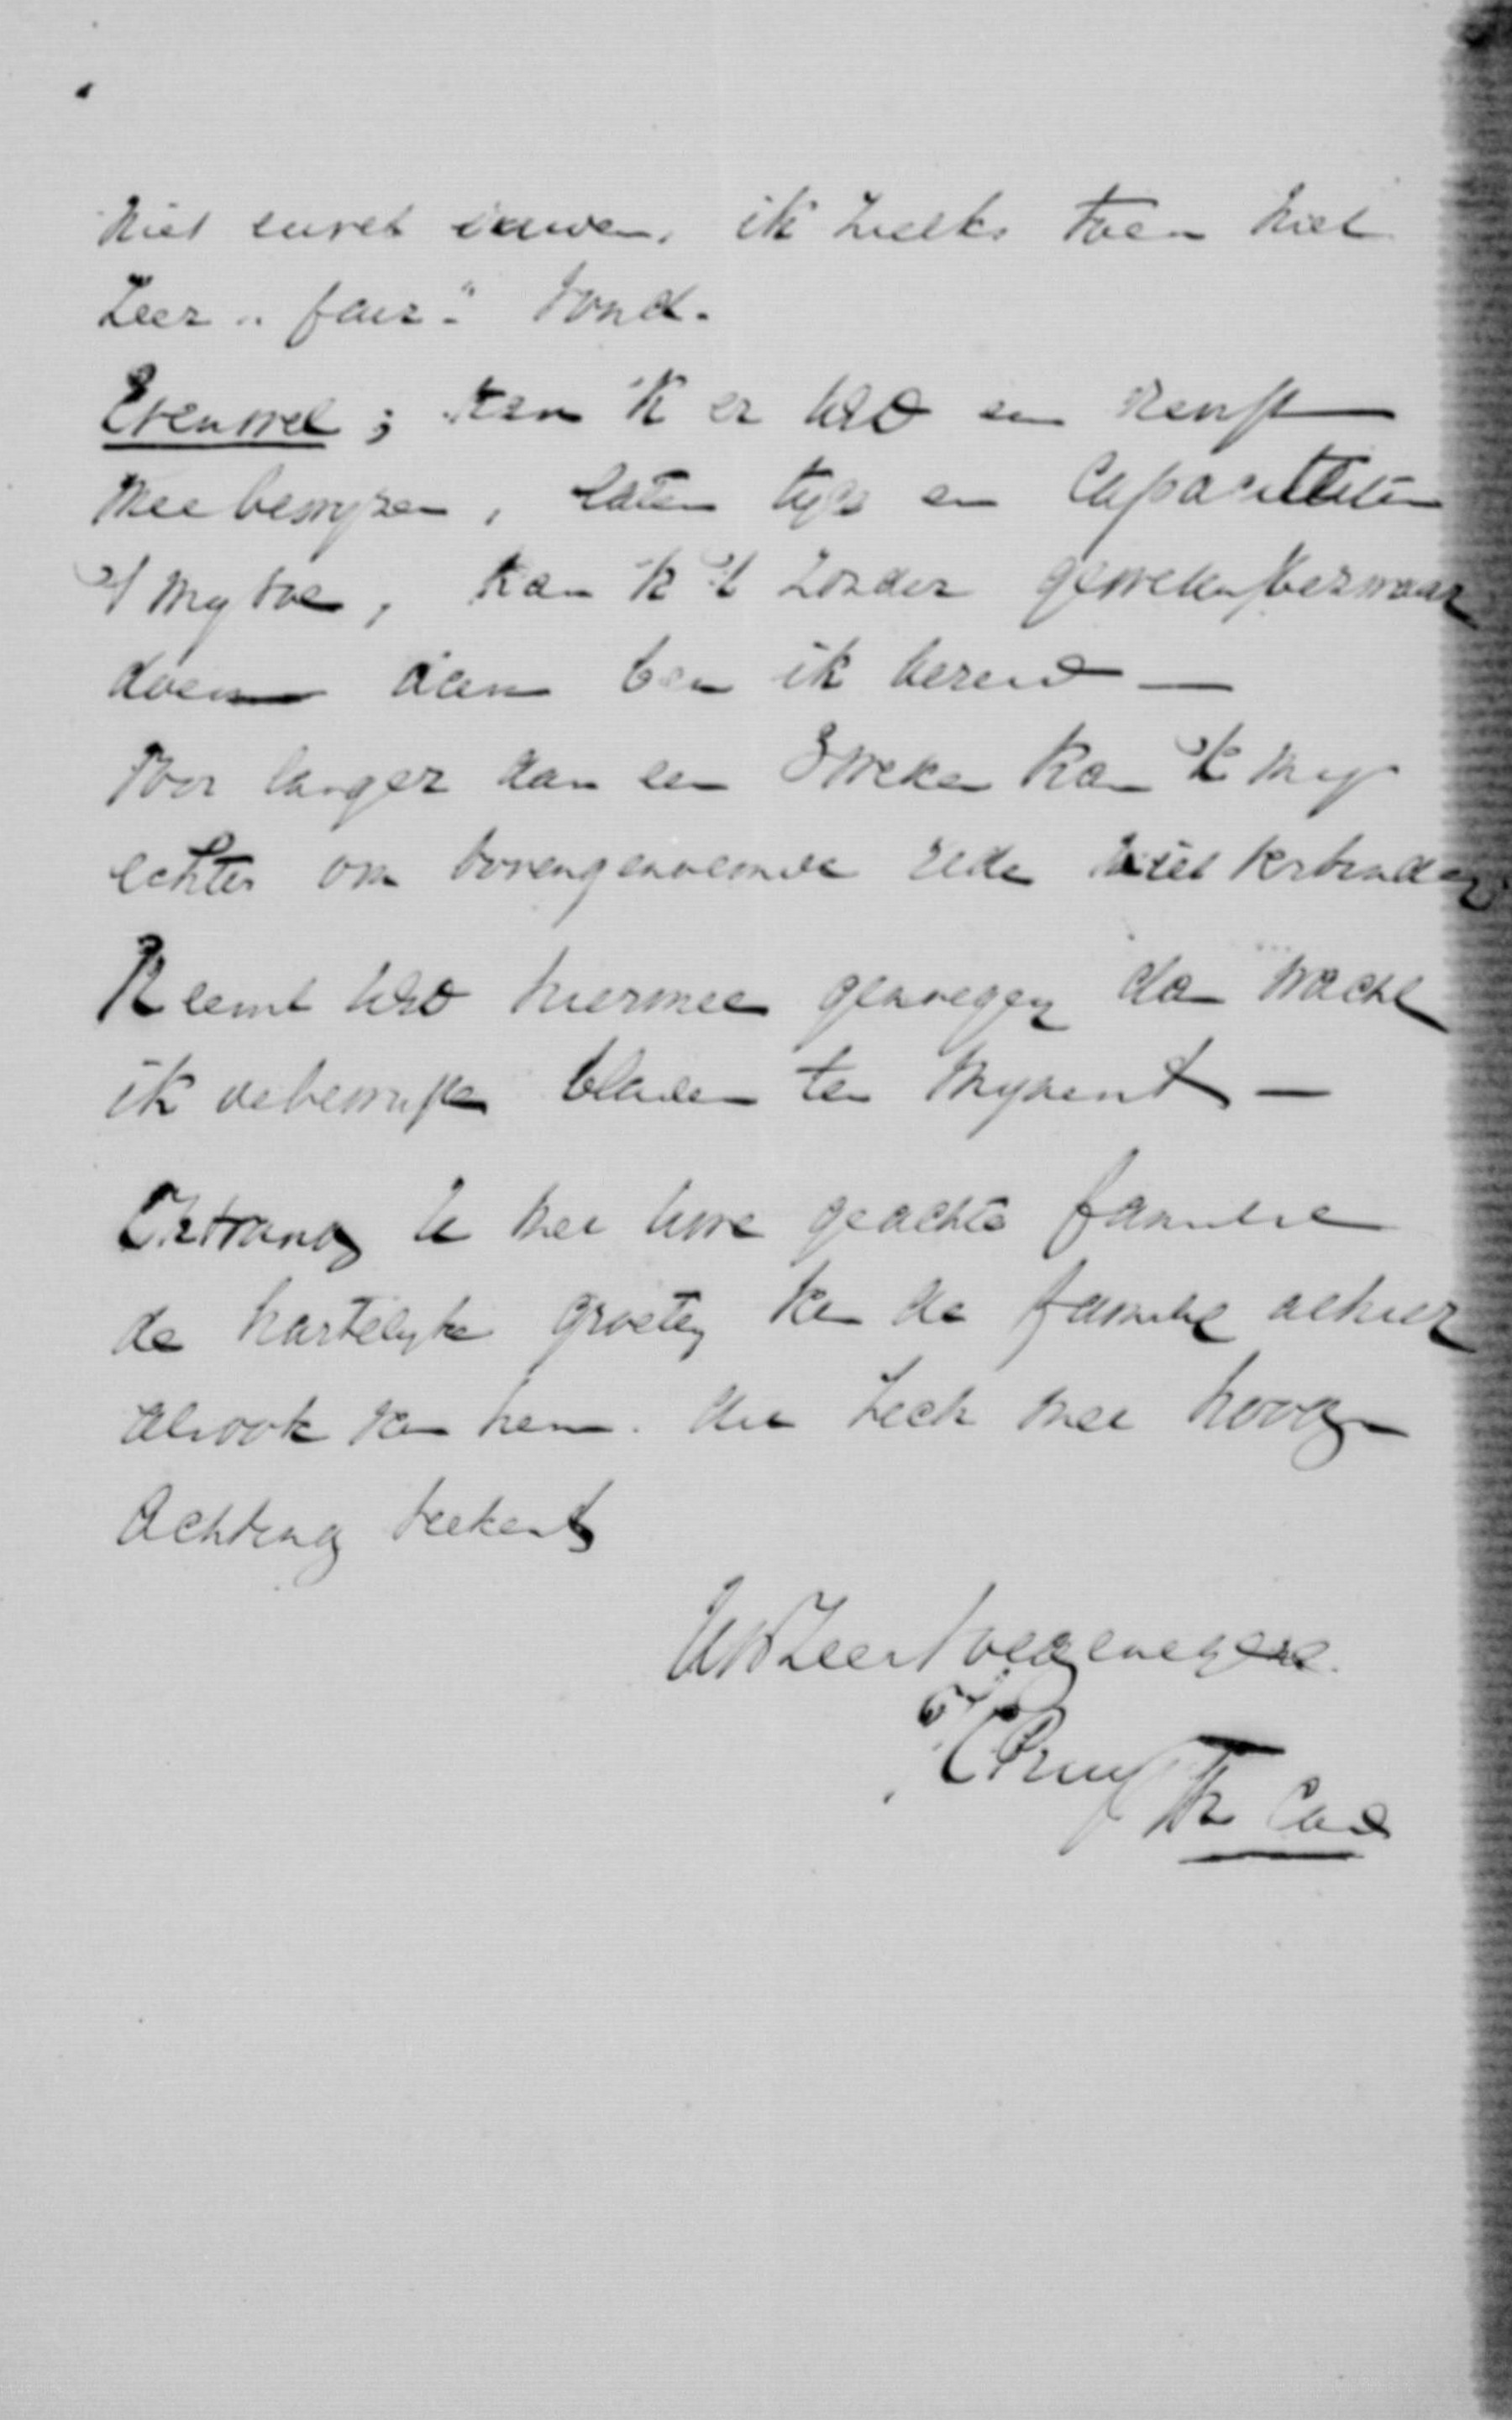 niet ik zulks toen niet
zeer „fair" vond.
Evenwel; kan ik er UEd een dienst
mee bewijzen, laten tijd en capaciteiten
't mij toe, kan ik 't zonder gewetensbezwaar
doen dan ben ik bereid —
Voor langer dan een 3 weken kan ik mij
echter om bovengenoemde rede niet verbinden
Neemt UEd hiermee genoegen dan wacht
ik de bewuste bladen ten mijnent —
Ontvang U met Uwe geachte familie
de hartelijke groeten van de familie alhier
alsook van hem die zich met hooge
Achting teekent
UEd Zeer toegenegene